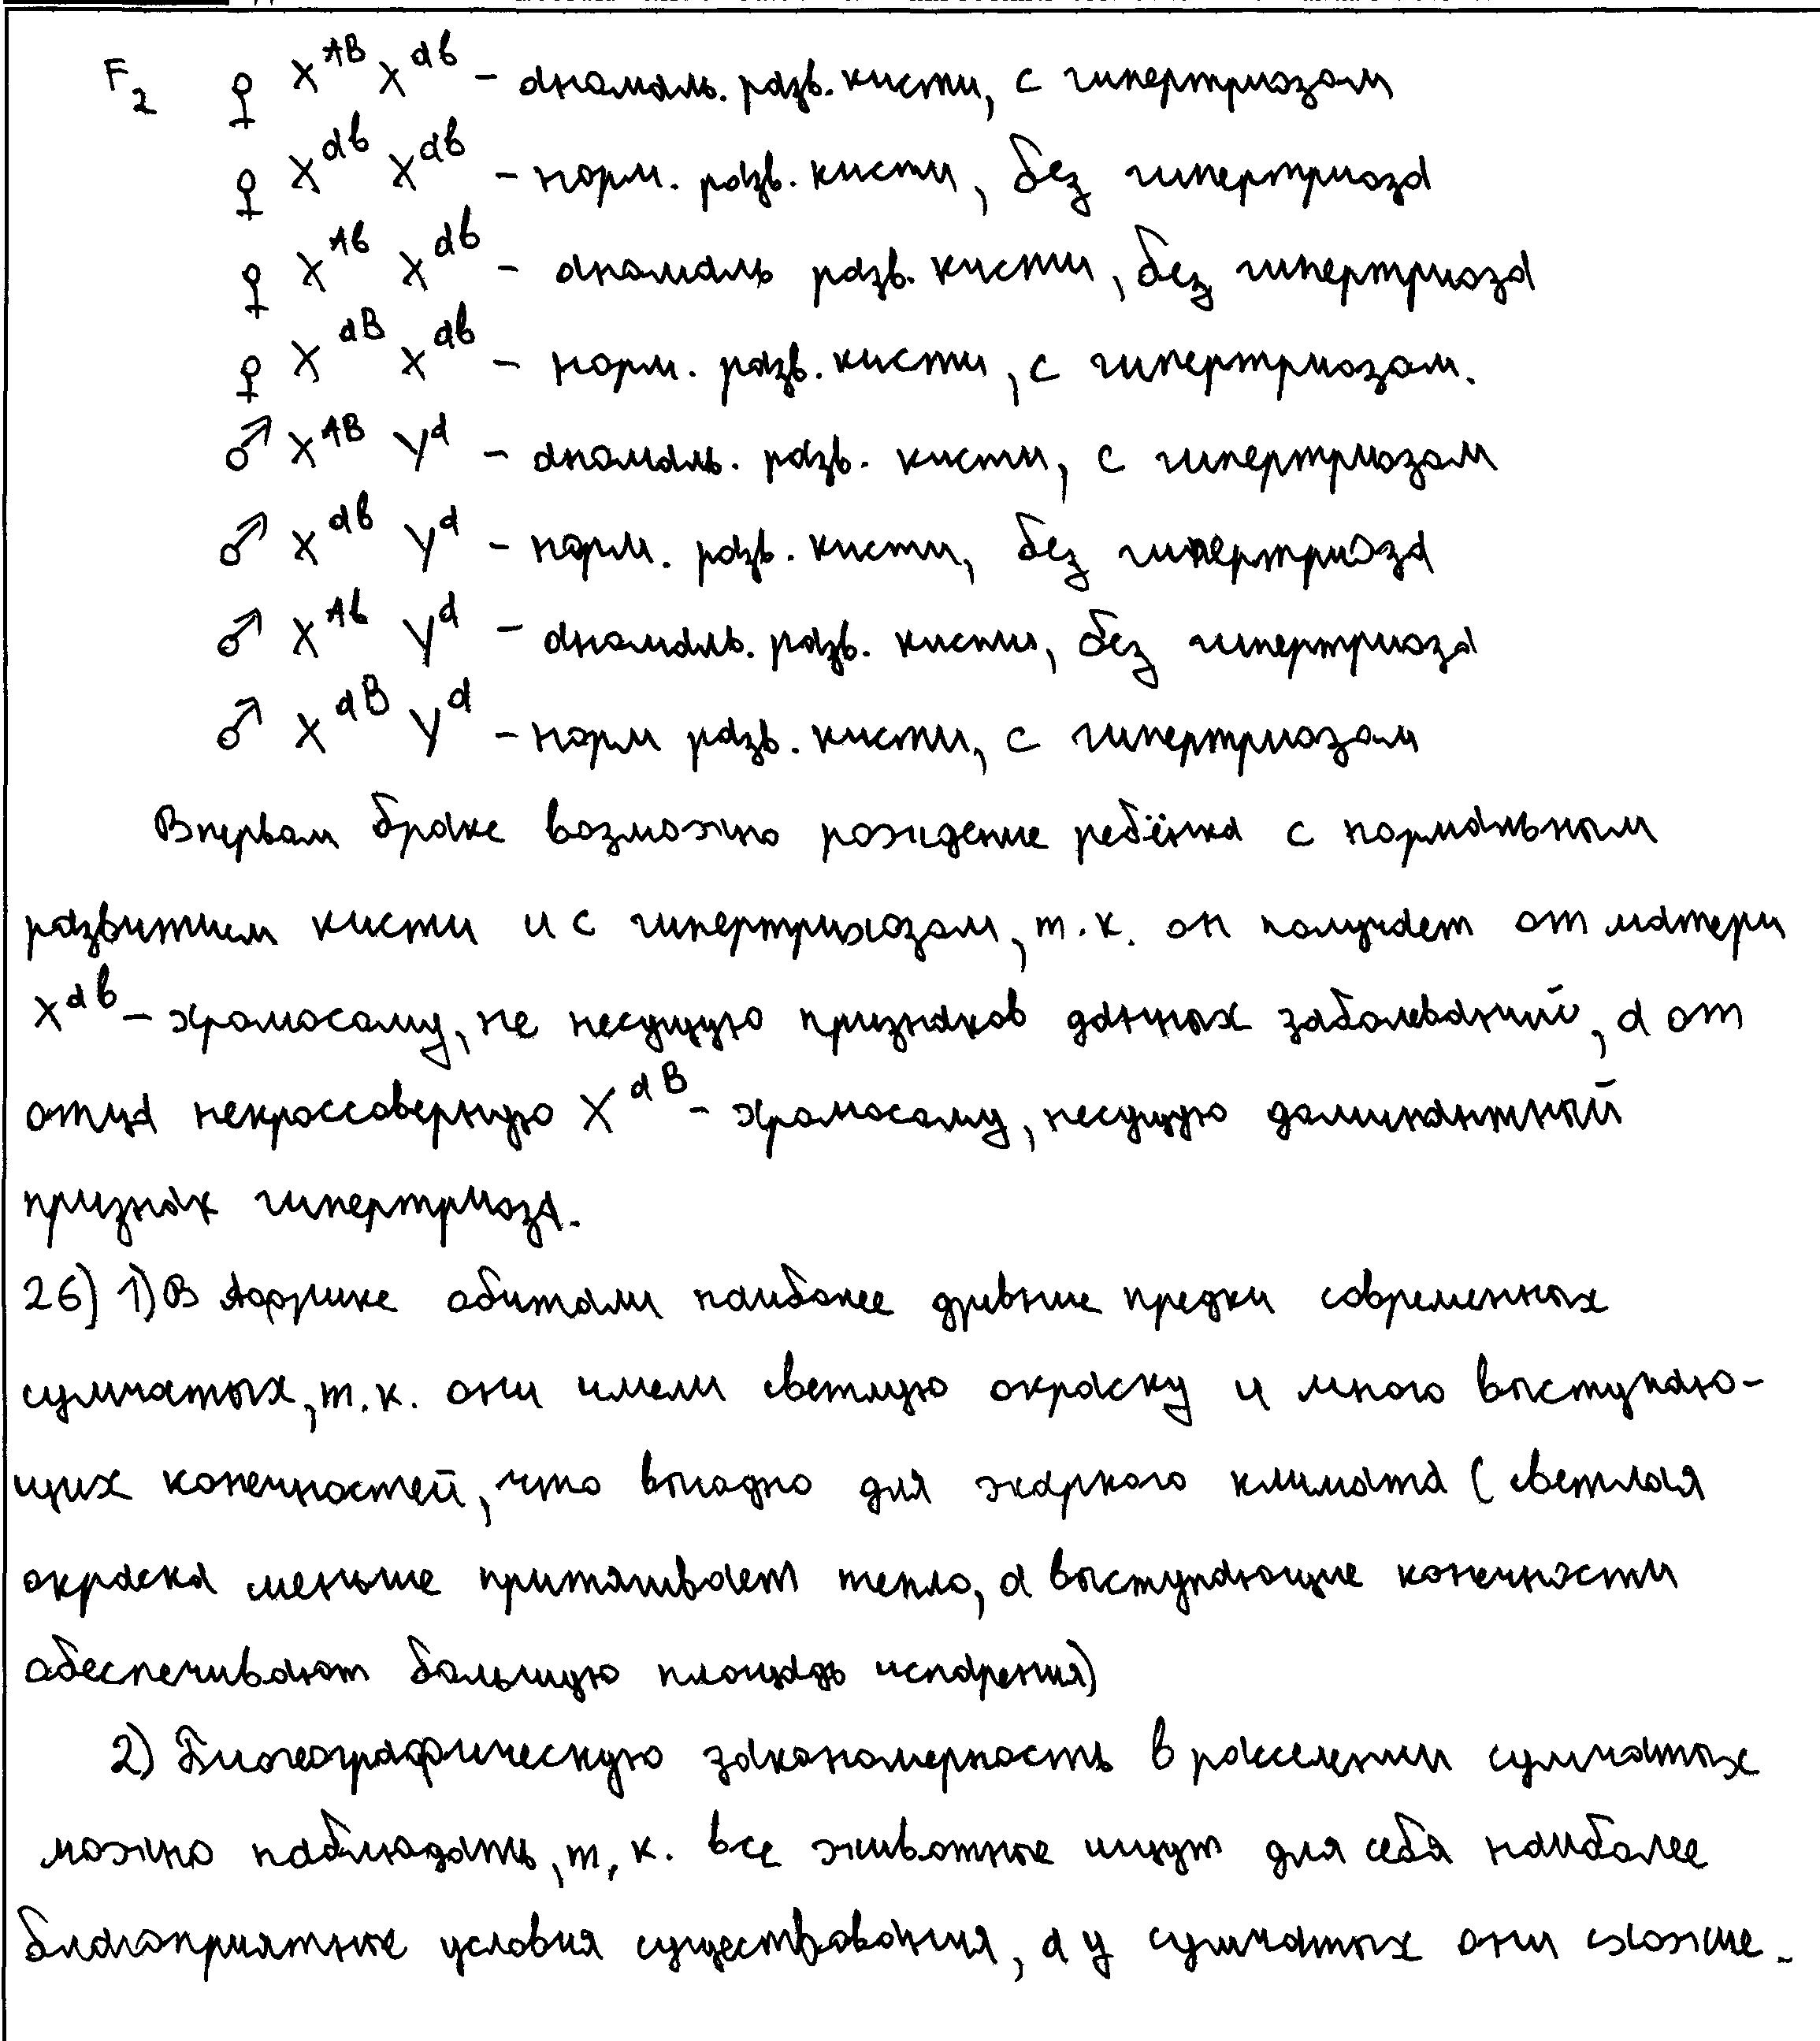 F₂ ♀ X^AB X^ab – аномаль. разв. кисти, с гипертриозом
♀ X^ab X^ab – норм. разв. кисти, без гипертриоза
♀ X^Ab X^ab – аномаль разв. кисти, без гипертриоза
♀ X^aB X^ab – норм. разв. кисти, с гипертриозом.
♂ X^AB Y^a – аномаль. разв. кисти, с гипертриозом
♂ X^ab Y^a – норм. разв. кисти, без гипертриоза
♂ X^Ab Y^a – аномаль. разв. кисти, без гипертриоза
♂ X^aB Y^a – норм разв. кисти, с гипертриозом
В первом браке возможно рождение ребёнка с нормальным
развитием кисти и с гипертрихозом, т.к. он получает от матери
X^ab – хромосому, не несущую признаков данных заболеваний, а от
отца некроссоверную X^aB – хромосому, несущую доминантный
признак гипертриоза.
26) 1) В Африке обитали наиболее древние предки современных
сумчатых, т.к. они имели светлую окраску и много выступаю-
щих конечностей, что выгодно для жаркого климата (светлая
окраска меньше притягивает тепло, а выступающие конечности
обеспечивают большую площадь испарения)
2) Биогеографическую закономерность в расселении сумчатых
можно наблюдать, т, к. все животные ищут для себя наиболее
благоприятные условия существования, а у сумчатых они схожие.